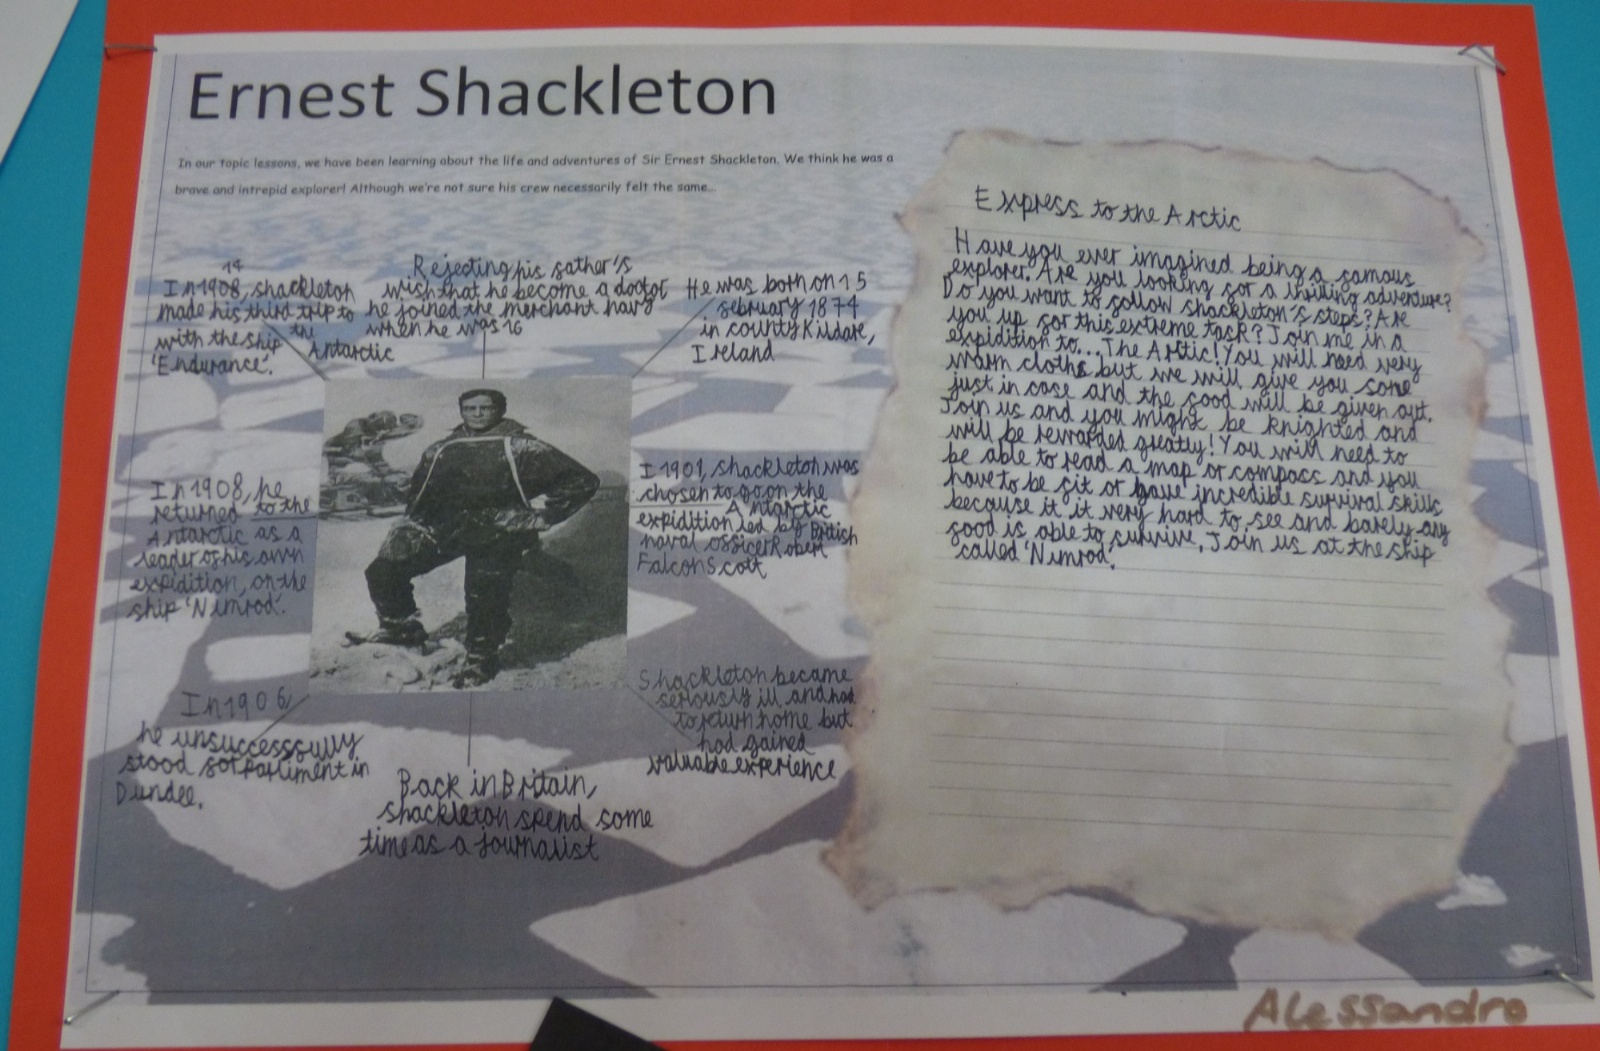 Ernest Shackleton
In our topic lessons, we have been learning about the life and adventures of Sir Ernest Shackleton. We think he was a
brave and intrepid explorer! Although we're not sure his crew necessarily felt the same...
14
In 1908, shackleton
made his third trip to
with the ship the
'Endurance'. Antarctic
Rejecting his father's
wish that he become a doctor
he joined the merchant navy
when he was 16
He was born on 15
february 1874
in county Kildare,
Ireland
In 1908, he
returned to the
Antarctic as a
leader of his own
expidition, on the
ship 'Nimrod'.
I 1901, shackleton was
chosen to go on the
Antarctic
expidition led by British
naval officer Robert
Falcon Scott
In 1906,
he unsuccessfully
stood for Parliment in
Dundee.
Back in Britain,
shackleton spend some
time as a journalist
Shackleton became
seriously ill and had
to return home but
had gained
valuable experience
Express to the Arctic
Have you ever imagined being a famous
explorer. Are you looking for a thriling adventure?
Do you want to follow shackleton's steps? Are
you up for this extreme task? Join me in a
expidition to... The Arctic! You will need very
warm cloths but we will give you some
just in case and the food will be given out.
Join us and you might be knighted and
will be rewarded greatly! You will need to
be able to read a map or compass and you
have to be fit or have incredible survival skills
because it it very hard to see and barely any
food is able to survive. Join us at the ship
called 'Nimrod'.
Alessandro